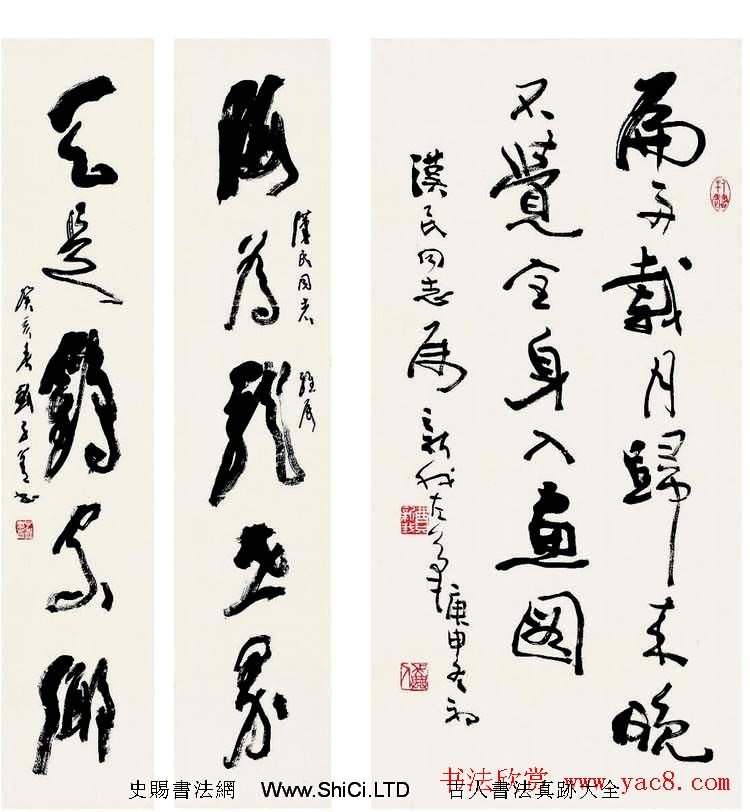 扁舟載月歸來晚
不覺全身入畫圖
漢民同志屬 新我左筆 庚申冬初
海為龍世界
漢民同志
雅屬
天是鶴家鄉
癸亥春
书法欣赏 www.yac8.com
史賜書法網 Www.ShiCi.LTD 古人書法真跡大全